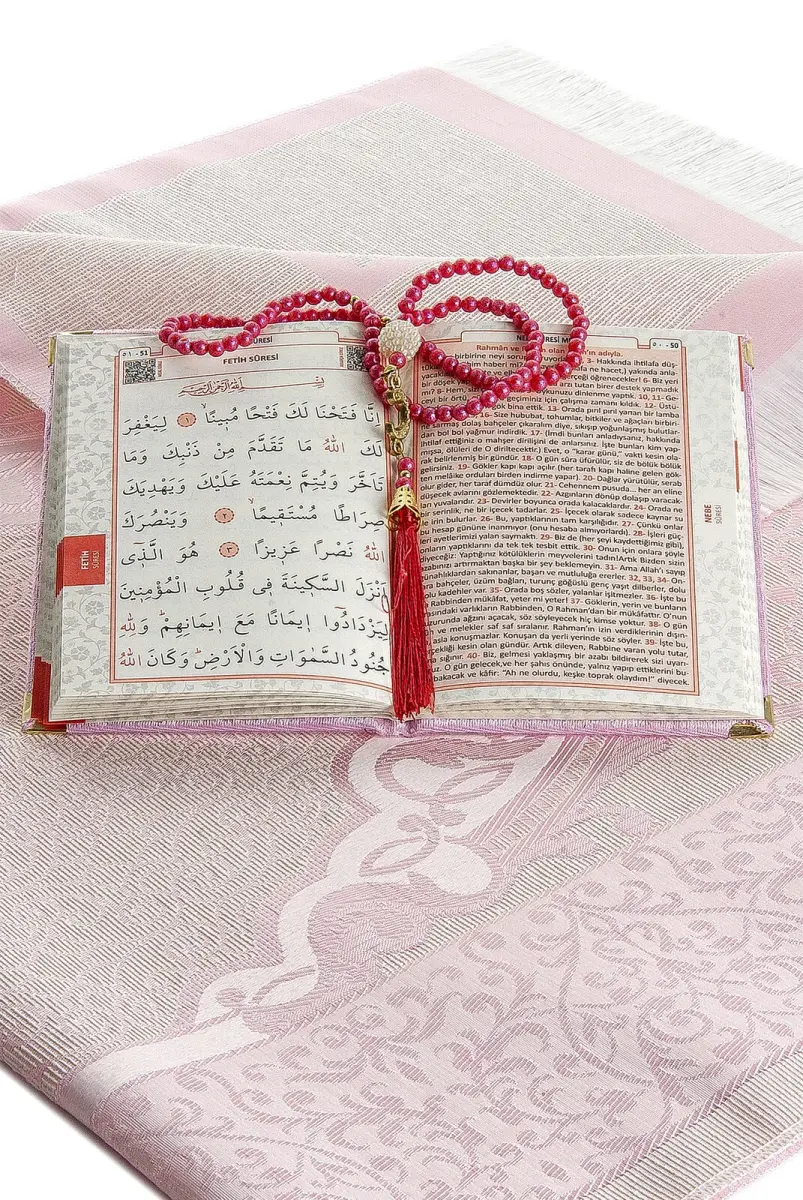 ٥١ - 51
SÛRESİ
FETİH SÛRESİ
بِسْمِ اللّٰهِ الرَّحْمٰنِ الرَّحِيمِ
اِنَّا فَتَحْنَا لَكَ فَتْحًا مُبِينًاۙ ١ لِيَغْفِرَ
لَكَ اللّٰهُ مَا تَقَدَّمَ مِنْ ذَنْبِكَ وَمَا
تَاَخَّرَ وَيُتِمَّ نِعْمَتَهُ عَلَيْكَ وَيَهْدِيَكَ
صِرَاطًا مُسْتَقِيمًاۙ ٢ وَيَنْصُرَكَ
اللّٰهُ نَصْرًا عَزِيزًا ٣ هُوَ الَّذ۪ٓى
اَنْزَلَ السَّك۪ينَةَ ف۪ى قُلُوبِ الْمُؤْمِن۪ينَ
لِيَزْدَادُٓوا ا۪يمَانًا مَعَ ا۪يمَانِهِمْۜ وَلِلّٰهِ
جُنُودُ السَّمٰوَاتِ وَالْاَرْضِۜ وَكَانَ اللّٰهُ
FETİH
SÛRESİ
٥٠ - 50
Rahmân ve olan adıyla.
birbirine neyi 3- Hakkında ihtilafa düş-
gerçeği öğrenecekler! 6- Biz yeri
bir döşek arzı tutan birer destek yapmadık
mı? 8- Hem, uykunuzu dinlenme yaptık. 10, 11- Ge-
ceyi bir örtü, geçiminiz için çalışma zamanı kıldık. 12- Üstü-
gök bina ettik. 13- Orada pırıl pırıl yanan bir lamba
16- Size hububat, tohumlar, bitkiler ve ağaçları birbiri-
ne sarmaş dolaş bahçeler çıkaralım diye, sıkışıp yoğunlaşmış bulutlar-
dan bol bol yağmur indirdik. 17- (İndi bunları anladıysanız, hakkında
ihtilaf ettiğiniz o mahşer dirilişini de anlarsınız. İşte bunları kim yap-
mışsa, ölüleri de O diriltecektir.) Evet, o "karar günü," vakti kesin ola-
rak belirlenmiş bir gündür. 18- O gün sûra üfürülür, siz de bölük bölük
gelirsiniz. 19- Gökler kapı kapı açılır (her taraf kapı haline gelen gök-
ten melâike orduları birden indirme yapar). 20- Dağlar yürütülür, serab
olur gider, her taraf dümdüz olur. 21- Cehennem pusuda... her an eline
düşecek avlarını gözlemektedir. 22- Azgınların dönüp dolaşıp varacak-
ları yuvalarıdır. 23- Devirler boyunca orada kalacaklardır. 24- Orada ne
bir serinlik, ne bir içecek tadarlar. 25- İçecek olarak sadece kaynar su
ve irin bulurlar. 26- Bu, yaptıklarının tam karşılığıdır. 27- Çünkü onlar
bu hesap gününe inanmıyor (onu hesaba almıyorlardı). 28- İşleri güç-
leri ayetlerimizi yalan saymaktı. 29- Biz de (her şeyi kaydettiğimiz gibi),
onların yaptıklarını da tek tek tesbit ettik. 30- Onun için onlara şöyle
diyeceğiz: Yaptığınız kötülüklerin meyvelerini tadın! Artık Bizden sizin
azabınızı artırmaktan başka bir şey beklemeyin. 31- Ama Allah'ı sayıp
günahlıklardan sakınanlar, başarı ve mutluluğa ererler. 32, 33, 34- On-
lara bahçeler, üzüm bağları, turunç göğüslü genç yaşıt dilberler, dolu
dolu kadehler var. 35- Orada boş sözler, yalanlar işitmezler. 36- İşte bu
Rabbinden mükâfat, yeter mi yeter! 37- Göklerin, yerin ve bunların
arasındaki varlıkların Rabbinden, O Rahman'dan bir mükâfattır. O'nun
huzurunda ağzını açacak, söz söyleyecek hiç kimse yoktur. 38- O gün
ve melekler saf saf sıralanır. Rahman'ın izin verdiklerinin dışın-
asla konuşmazlar. Konuşan da yerli yerinde söz söyler. 39- İşte bu,
gerçekliği kesin olan gündür. Artık dileyen, Rabbine varan yolu tutar,
sığınır. 40- Biz, gelmesi yaklaşmış bir azabı bildirerek sizi uyar-
O gün gelecek, ve her şahıs önünde, yalnız yapıp ettiklerini bu-
bakacak ve kâfir: "Ah ne olurdu, keşke toprak olaydım!" diyecek.
NEBE
SÛRESİ